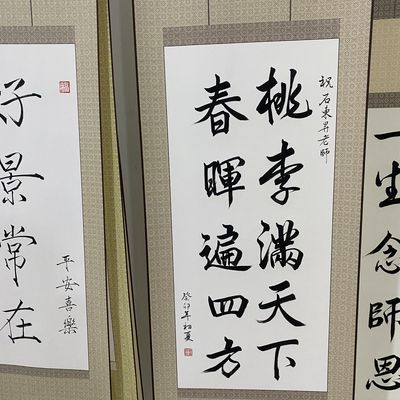 一生念師恩
祝石東昇老師
桃李滿天下
春暉遍四方
癸卯年初夏
好景常在
平安喜樂